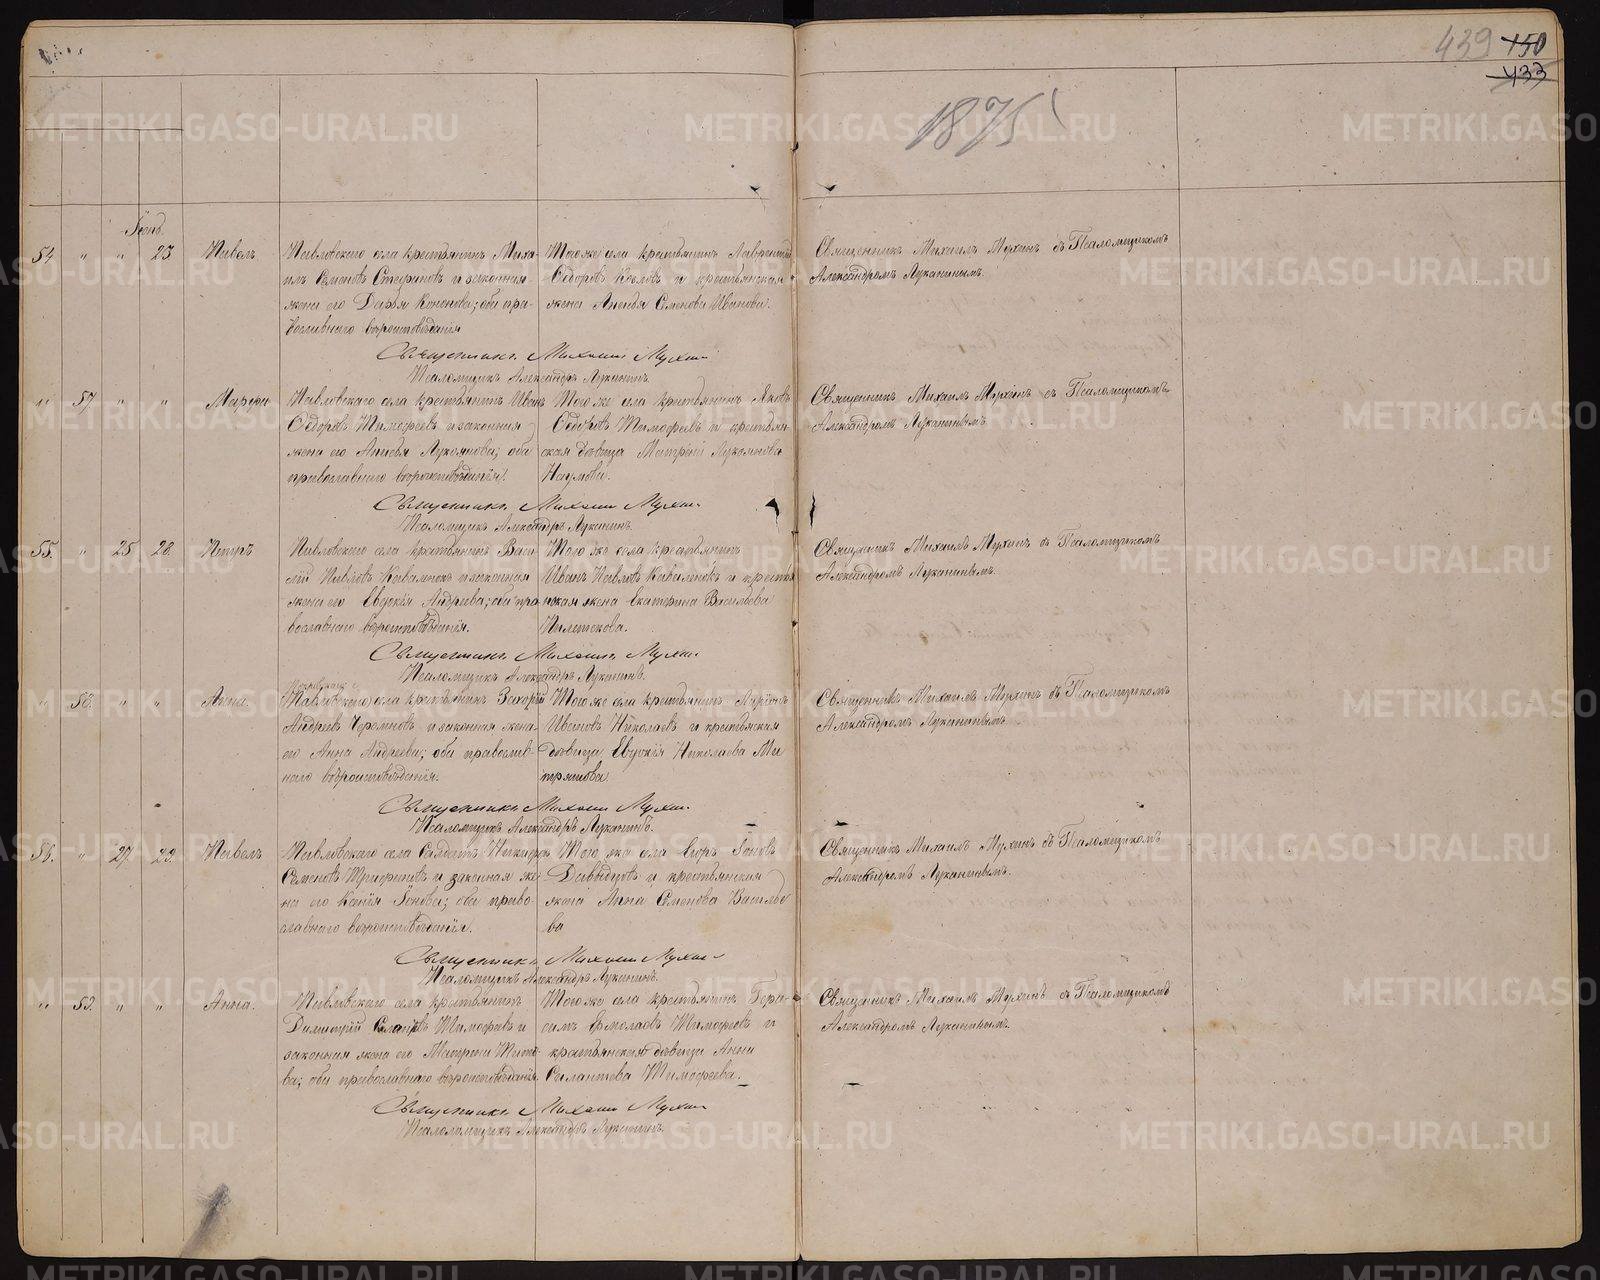 439 150
433
1875
54. " " 23 Павелъ
Павловскаго села крестьянинъ Миха-
илъ Семеновъ Стефановъ и законная
жена его Дарья Кононова; оба пра-
вославнаго вѣроисповѣданія
Того же села крестьянинъ Лаврентій
Ѳедоровъ Козловъ и крестьянская
жена Анисья Семенова Иванова.
Священникъ Михаилъ Мухинъ съ Псаломщикомъ
Александромъ Луканинымъ.
Священникъ Михаилъ Мухинъ
Псаломщикъ Александръ Луканинъ.
" 57. " " Марѳа
Павловскаго села крестьянинъ Иванъ
Ѳедоровъ Тимофеевъ и законная
жена его Анисья Лукоянова; оба
православнаго вѣроисповѣданія.
Того же села крестьянинъ Яковъ
Ѳедоровъ Тимофеевъ и крестьян-
ская дѣвица Матрена Лукоянова
Наумова.
Священникъ Михаилъ Мухинъ съ Псаломщикомъ
Александромъ Луканинымъ.
Священникъ Михаилъ Мухинъ
Псаломщикъ Александръ Луканинъ.
55. " 25. 28. Петръ
Павловскаго села крестьянинъ Васи-
лій Павловъ и законная
жена его Евдокія Андреева; оба пра-
вославнаго вѣроисповѣданія.
Того же села крестьянинъ
Иванъ Павловъ и крестья-
нская жена Екатерина Васильева
Священникъ Михаилъ Мухинъ съ Псаломщикомъ
Александромъ Луканинымъ.
Священникъ Михаилъ Мухинъ
Псаломщикъ Александръ Луканинъ.
" 58. " " Анна.
Павловскаго села крестьянинъ Захарій
Андреевъ и законная жена
его Анна Андреева; оба православ-
наго вѣроисповѣданія.
Того же села крестьянинъ
Ивановъ Николаевъ и крестьянская
дѣвица Евдокія Николаева Ми
трянова
Священникъ Михаилъ Мухинъ съ Псаломщикомъ
Александромъ Луканинымъ.
Священникъ Михаилъ Мухинъ
Псаломщикъ Александръ Луканинъ.
56. " 27. 29. Павелъ
Павловскаго села Солдатъ Никифоръ
Семеновъ Трифоновъ и законная же
на его Ксенія Іонова; оба право-
славнаго вѣроисповѣданія.
Того же села Егоръ Іоновъ
Давыдовъ и крестьянская
жена Анна Семенова Василье
ва
Священникъ Михаилъ Мухинъ съ Псаломщикомъ
Александромъ Луканинымъ.
Священникъ Михаилъ Мухинъ
Псаломщикъ Александръ Луканинъ.
" 59. " " Анна.
Павловскаго села крестьянинъ
Димитрій Тимофеевъ и
законная жена его Матрена Тито-
ва; оба православнаго вѣроисповѣданія.
Того же села крестьянинъ Гера-
симъ Ермолаевъ Тимофеевъ и
крестьянская дѣвица Анна
Силантьева Тимофеева.
Священникъ Михаилъ Мухинъ съ Псаломщикомъ
Александромъ Луканинымъ.
Священникъ Михаилъ Мухинъ
Псаломщикъ Александръ Луканинъ.
METRIKI.GASO-URAL.RU